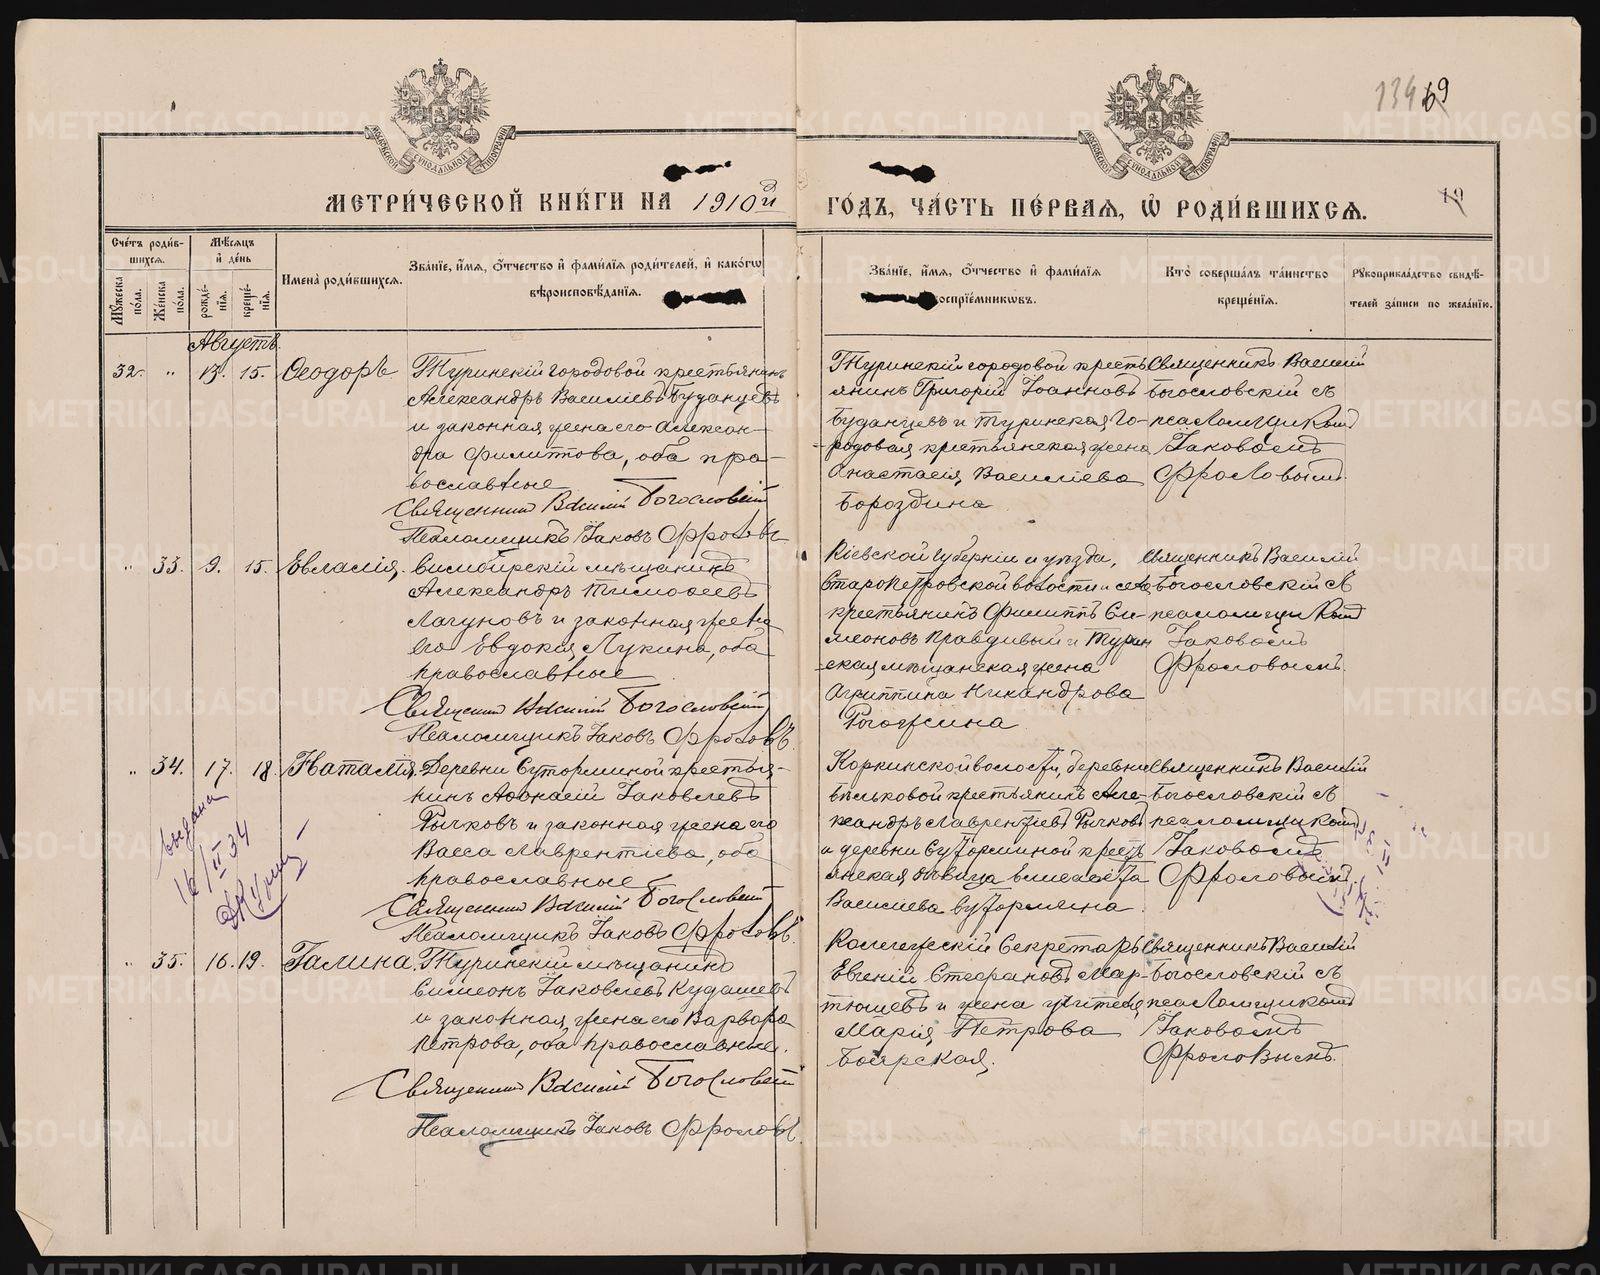 134 69
МЕТРИ́ЧЕСКОЙ КНИ́ГИ НА 1910й
ГО́ДЪ, ЧА́СТЬ ПЕ́РВАѦ, Ѡ҆ РОДИ́ВШИХСѦ.
19
МОСКОВСКОЙ СѴНОДАЛЬНОЙ ТИПОГРАФІИ
МОСКОВСКОЙ СѴНОДАЛЬНОЙ ТИПОГРАФІИ
Сче́тъ роди́в-
шихсѧ.
Мꙋ́жеска по́ла.
Же́нска по́ла.
Мѣ́сѧцъ
и҆ де́нь
рожде́-
нїѧ.
креще́-
нїѧ.
И҆мена̀ роди́вшихсѧ.
Зва́нїе, и҆́мѧ, ѻ҆́тчество и҆ фами́лїѧ роди́телей, и҆ како́гѡ
вѣроисповѣ́данїѧ.
Зва́нїе, и҆́мѧ, ѻ҆́тчество и҆ фами́лїѧ
воспрїе́мникѡвъ.
Кто̀ соверша́лъ та́инство
креще́нїѧ.
Рꙋкоприкла́дство свидѣ́-
телей за́писи по жела́нїю.
Августъ.
32. " 13. 15. Ѳеодоръ
Туринскій городовой крестьянинъ
Александръ Василіевъ Буданцевъ
и законная жена его Алексан-
дра Филиппова, оба пра-
вославные
Священникъ Василій Богословскій
Псаломщикъ Іаковъ Фроловъ
Туринскій городовой кресть-
янинъ Григорій Іоанновъ
Буданцевъ и туринская го-
родовая крестьянская жена
Анастасія Василіева
Бороздина
Священникъ Василій
Богословскій съ
псаломщикомъ
Іаковомъ
Фроловымъ.
" 33. 9. 15. Евлалія.
Симбирскій мѣщанинъ
Александръ Тимоѳеевъ
Лагуновъ и законная жена
его Евдокія Лукина, оба
православные
Священникъ Василій Богословскій
Псаломщикъ Іаковъ Фроловъ.
Кіевской губерніи и уѣзда,
Старопетровской волости и села
крестьянинъ Филиппъ Си-
меоновъ Правдивый и Турин-
ская мѣщанская жена
Агриппина Никандрова
Рогожина
Священникъ Василій
Богословскій съ
псаломщикомъ
Іаковомъ
Фроловымъ.
" 34. 17. 18. Наталія.
Деревни Сутормины крестья-
нинъ Аѳанасій Іаковлевъ
Рычковъ и законная жена его
Васса Лаврентіева, оба
православные
Священникъ Василій Богословскій
Псаломщикъ Іаковъ Фроловъ.
Коркинской волости, деревни
Бѣльковой крестьянинъ Але-
ксандръ Лаврентіевъ Рычковъ
и деревни Суторминой кресть-
янская дѣвица Елисавета
Василіева Сутормина.
Священникъ Василій
Богословскій съ
псаломщикомъ
Іаковомъ
Фроловымъ.
выдана
16/II 34
" 35. 16. 19. Галина.
Туринскій мѣщанинъ
Симеонъ Іаковлевъ Кудашевъ
и законная жена его Варвара
Петрова, оба православные.
Священникъ Василій Богословскій
Псаломщикъ Іаковъ Фроловъ.
Коллежскій Секретарь
Евгеній Стефановъ Мар-
тюшевъ и жена учителя
Марія Петрова
Боярская.
Священникъ Василій
Богословскій съ
псаломщикомъ
Іаковомъ
Фроловымъ.
METRIKI.GASO-URAL.RU